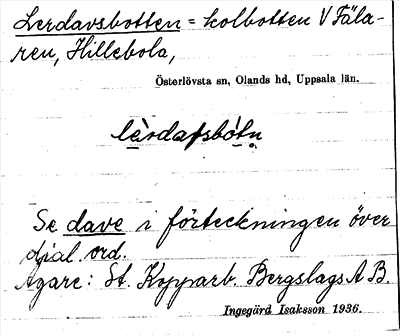 Lerdavsbotten = kolbotten V Fäla-
ren, Hillebola,
Österlövsta sn, Olands hd, Uppsala län.
lè̀rdavsbót̀n̥
Se dave i förteckningen över
djal. ord.
Ägare: St. Kopparb. Bergslags A B.
Ingegärd Isaksson 1936.